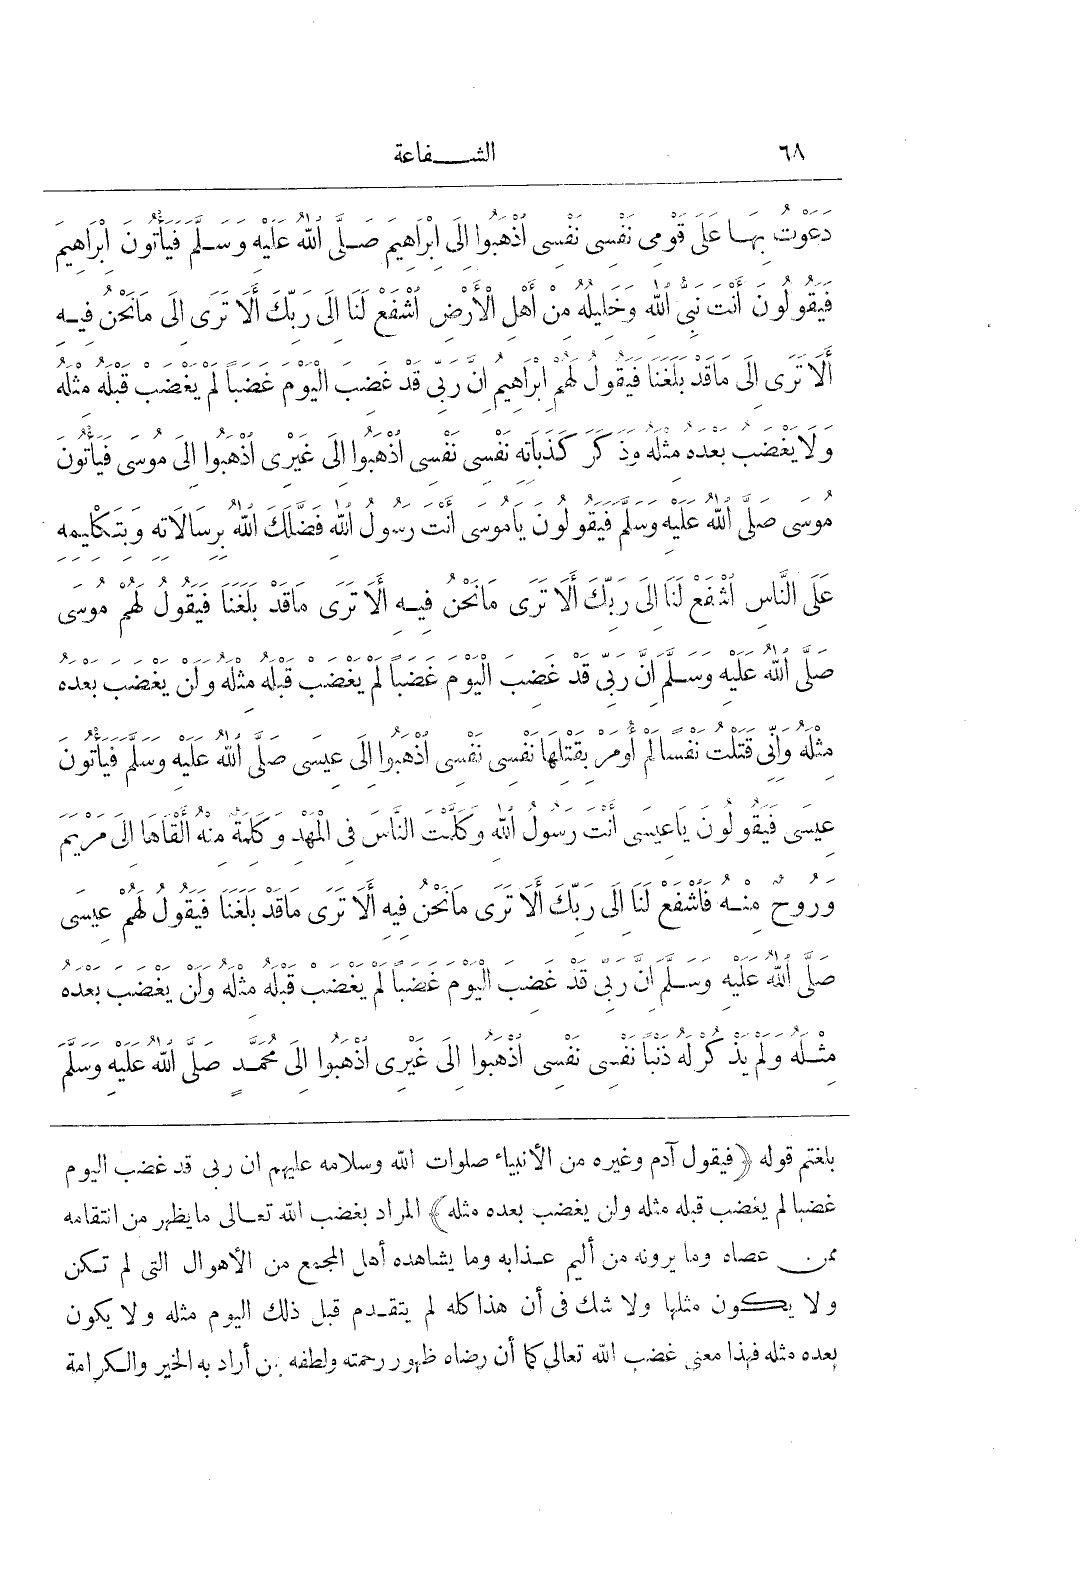 ٦٨ الشـــفاعة
دَعَوْتُ بِهَا عَلَى قَوْمِي نَفْسِى نَفْسِى اذْهَبُوا إِلَى إِبْرَاهِيمَ صَلَّى اللهُ عَلَيْهِ وَسَلَّمَ فَيَأْتُونَ إِبْرَاهِيمَ
فَيَقُولُونَ أَنْتَ نَبِيُّ اللهِ وَخَلِيلُهُ مِنْ أَهْلِ الْأَرْضِ اشْفَعْ لَنَا إِلَى رَبِّكَ أَلَا تَرَى إِلَى مَانَحْنُ فِيـهِ
أَلَا تَرَى إِلَى مَاقَدْ بَلَغَنَا فَيَقُولُ لَهُمْ إِبْرَاهِيمُ إِنَّ رَبِّى قَدْ غَضِبَ الْيَوْمَ غَضَبًا لَمْ يَغْضَبْ قَبْلَهُ مِثْلَهُ
وَلَا يَغْضَبُ بَعْدَهُ مِثْلَهُ وَذَكَرَ كَذَبَاتِهِ نَفْسِى نَفْسِى اذْهَبُوا إِلَى غَيْرِى اذْهَبُوا إِلَى مُوسَى فَيَأْتُونَ
مُوسَى صَلَّى اللهُ عَلَيْهِ وَسَلَّمَ فَيَقُولُونَ يَامُوسَى أَنْتَ رَسُولُ اللهِ فَضَّلَكَ اللهُ بِرِسَالَاتِهِ وَبِتَكْلِيمِهِ
عَلَى النَّاسِ اشْفَعْ لَنَا إِلَى رَبِّكَ أَلَا تَرَى مَانَحْنُ فِيـهِ أَلَا تَرَى مَاقَدْ بَلَغَنَا فَيَقُولُ لَهُمْ مُوسَى
صَلَّى اللهُ عَلَيْهِ وَسَلَّمَ إِنَّ رَبِّى قَدْ غَضِبَ الْيَوْمَ غَضَبًا لَمْ يَغْضَبْ قَبْلَهُ مِثْلَهُ وَلَنْ يَغْضَبَ بَعْدَهُ
مِثْلَهُ وَإِنِّى قَتَلْتُ نَفْسًا لَمْ أُومَرْ بِقَتْلِهَا نَفْسِى نَفْسِى اذْهَبُوا إِلَى عِيسَى صَلَّى اللهُ عَلَيْهِ وَسَلَّمَ فَيَأْتُونَ
عِيسَى فَيَقُولُونَ يَاعِيسَى أَنْتَ رَسُولُ اللهِ وَكَلَّمْتَ النَّاسَ فِى الْمَهْدِ وَكَلِمَةٌ مِنْهُ أَلْقَاهَا إِلَى مَرْيَمَ
وَرُوحٌ مِنْـهُ فَاشْفَعْ لَنَا إِلَى رَبِّكَ أَلَا تَرَى مَانَحْنُ فِيهِ أَلَا تَرَى مَاقَدْ بَلَغَنَا فَيَقُولُ لَهُمْ عِيسَى
صَلَّى اللهُ عَلَيْهِ وَسَلَّمَ إِنَّ رَبِّى قَدْ غَضِبَ الْيَوْمَ غَضَبًا لَمْ يَغْضَبْ قَبْلَهُ مِثْلَهُ وَلَنْ يَغْضَبَ بَعْدَهُ
مِثْلَهُ وَلَمْ يَذْكُرْ لَهُ ذَنْبًا نَفْسِى نَفْسِى اذْهَبُوا إِلَى غَيْرِى اذْهَبُوا إِلَى مُحَمَّـدٍ صَلَّى اللهُ عَلَيْهِ وَسَلَّمَ
بلغتم قوله ﴿فيقول آدم وغيره من الأنبياء صلوات الله وسلامه عليهم ان ربى قد غضب اليوم
غضبا لم يغضب قبله مثله ولن يغضب بعده مثله﴾ المراد بغضب الله تعالى مايظهر من انتقامه
ممن عصاه وما يرونه من أليم عذابه وما يشاهده أهل المجمع من الأهوال التى لم تكن
ولا يكون مثلها ولا شك فى أن هذا كله لم يتقدم قبل ذلك اليوم مثله ولا يكون
بعده مثله فهذا معنى غضب الله تعالى كما أن رضاه ظهور رحمته ولطفه بمن أراد به الخير والكرامة